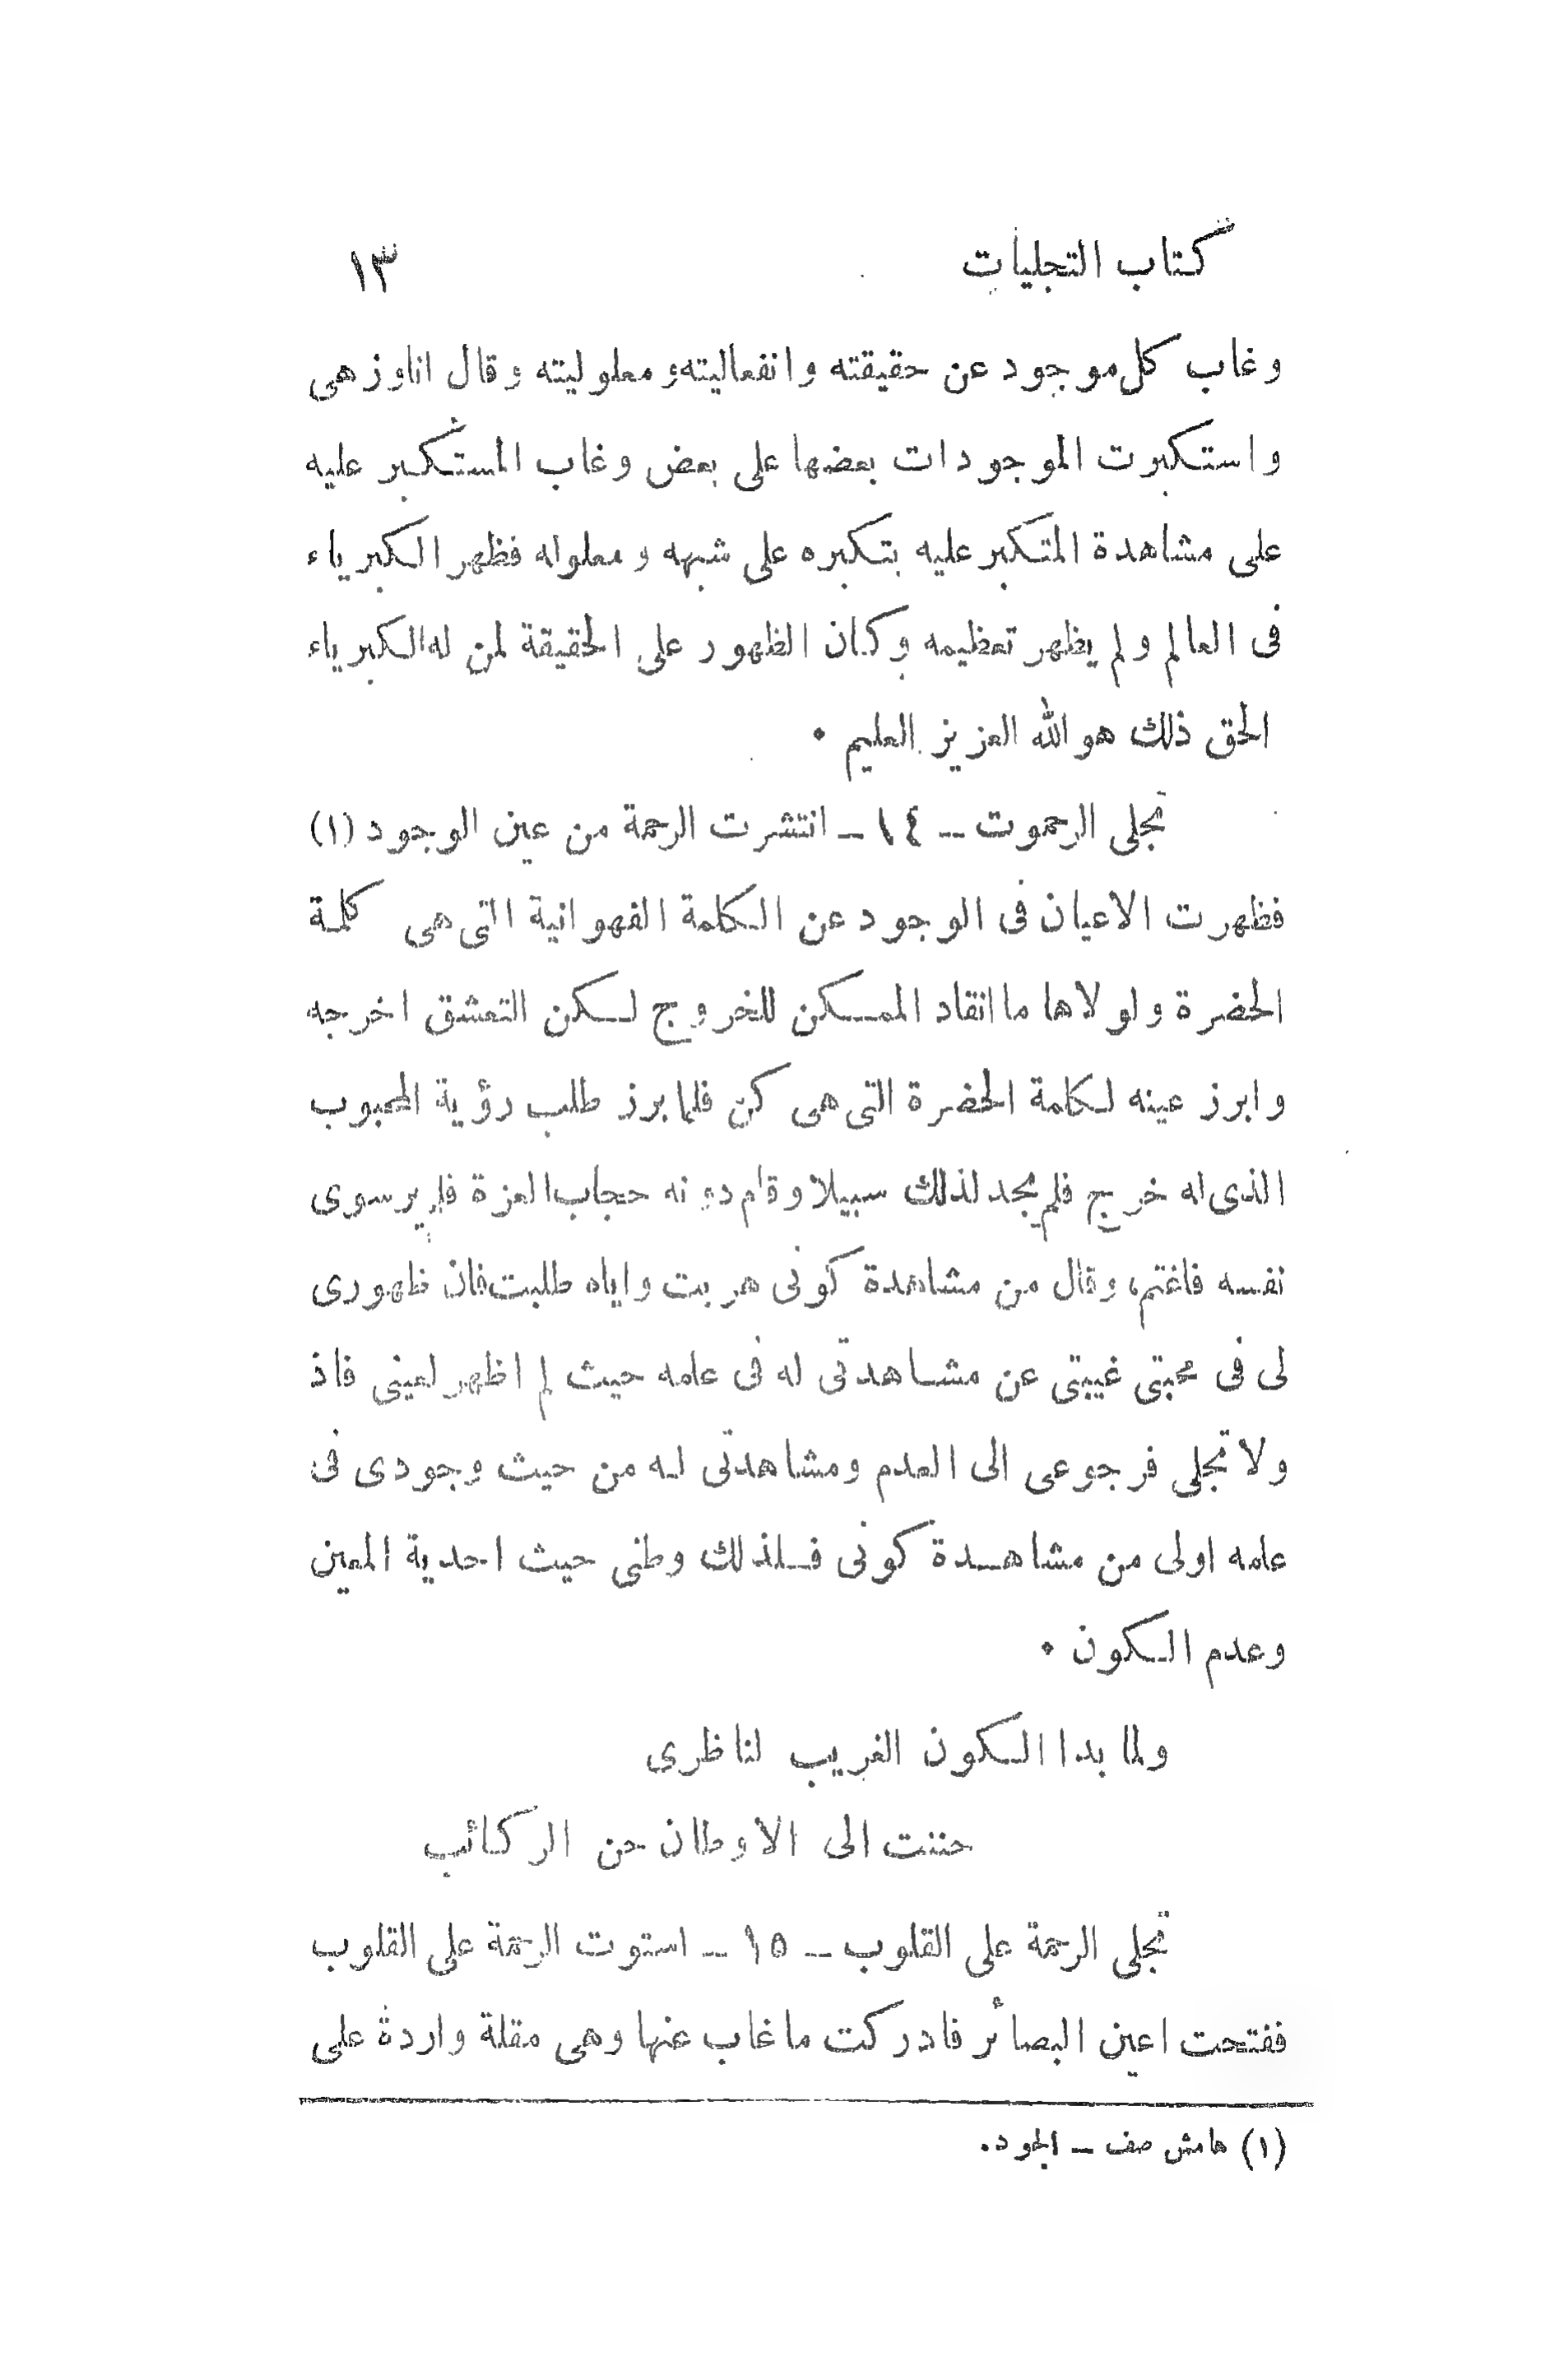 كتاب التجليات ١٣
وغاب كل موجود عن حقيقته وانفعاليته ومعلوليته وقال انا وزهى
واستكبرت الموجودات بعضها على بعض وغاب المستكبر عليه
على مشاهدة المتكبر عليه بتكبره على شبهه ومعلوله فظهر الكبرياء
فى العالم ولم يظهر تعظيمه وكان الظهور على الحقيقة لمن له الكبرياء
الحق ذلك هو الله العزيز العليم •
تجلى الرحموت - ١٤ - انتشرت الرحمة من عين الوجود (١)
فظهرت الاعيان فى الوجود عن الكلمة الفهوانية التى هى كلمة
الحضرة ولولاها ما انقاد الممكن للخروج لكن التعشق اخرجه
وابرز عينه لكلمة الحضرة التى هى كن فلما برز طلب رؤية المحبوب
الذى له خرج فلم يجد لذلك سبيلا وقام دونه حجاب العزة فلم ير سوى
نفسه فاغتم، وقال من مشاهدة كونى هربت واياه طلبت فان ظهورى
لى فى محبتى غيبتى عن مشاهدتى له فى علمه حيث لم اظهر لعينى فاذ
ولا تجلى فرجوعى الى العدم ومشاهدتى له من حيث وجودى فى
علمه اولى من مشاهدة كونى فلذلك وطنى حيث احدية المعين
وعدم الكون •
ولما بدا الكون الغريب لناظرى
حننت الى الاوطان حن الركائب
تجلى الرحمة على القلوب - ١٥ - استوت الرحمة على القلوب
ففتحت اعين البصائر فادركت ما غاب عنها وهى مقلة واردة على
(١) هامش صف - الجود.